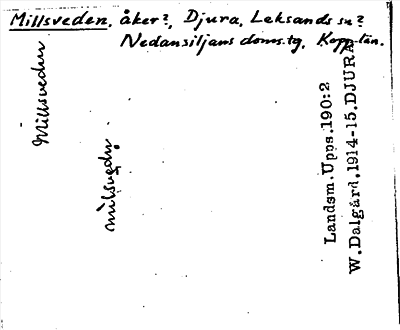 Millsveden, åker?, Djura, Leksands sn?
Nedansiljans doms.tg, Kopp. län.
Millsveden
Landsm.Upps.190:2
W.Dalgård.1914-15.DJURA